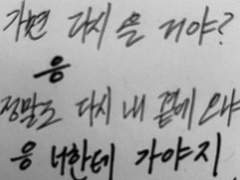 가면 다시 올 거야?
응
정말로 다시 내 곁에 오냐
응 너한테 가야지